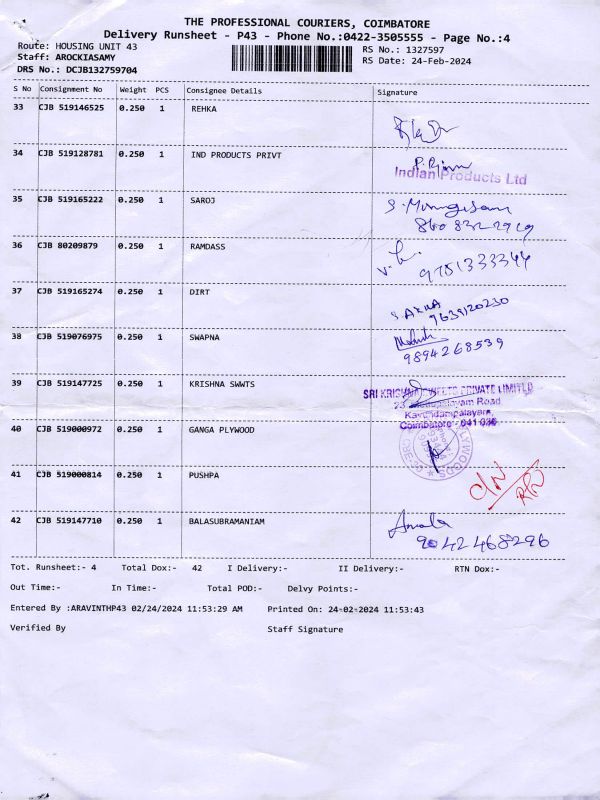 THE PROFESSIONAL COURIERS, COIMBATORE
Delivery Runsheet - P43 - Phone No.:0422-3505555 - Page No.:4
Route: HOUSING UNIT 43 RS No.: 1327597
Staff: AROCKIASAMY RS Date: 24-Feb-2024
DRS No.: DCJB132759704
S No Consignment No Weight PCS Consignee Details Signature
33 CJB 519146525 0.250 1 REHKA
34 CJB 519128781 0.250 1 IND PRODUCTS PRIVT
Indian Products Ltd
35 CJB 519165222 0.250 1 SAROJ
860 832 2919
36 CJB 80209879 0.250 1 RAMDASS
9751333344
37 CJB 519165274 0.250 1 DIRT
9639120230
38 CJB 519076975 0.250 1 SWAPNA
9894268539
39 CJB 519147725 0.250 1 KRISHNA SWWTS
SRI KRISHNA SWEETS PRIVATE LIMITED
23, Mettupalayam Road
Kavundampalayam,
Coimbatore - 641 030
40 CJB 519000972 0.250 1 GANGA PLYWOOD
41 CJB 519000814 0.250 1 PUSHPA
D/N RPN
42 CJB 519147710 0.250 1 BALASUBRAMANIAM
Amala
9042468296
Tot. Runsheet:- 4 Total Dox:- 42 I Delivery:- II Delivery:- RTN Dox:-
Out Time:- In Time:- Total POD:- Delvy Points:-
Entered By :ARAVINTHP43 02/24/2024 11:53:29 AM Printed On: 24-02-2024 11:53:43
Verified By Staff Signature